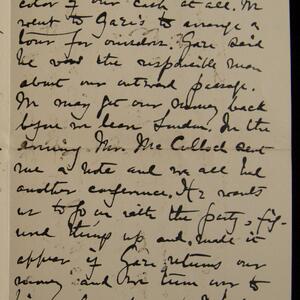 color of our cash at all. We
went to Gaze's to arrange a
tour for ourselves. Gaze said
he was the responsible man
about our outward passage.
We may get our money back
before we leave London. In the
evening Mr. McCulloch sent
me a note and we all had
another conference. He wants
us to go on with the party, fig-
ured things up and made it
appear if Gaze returns our
money and we turn over to